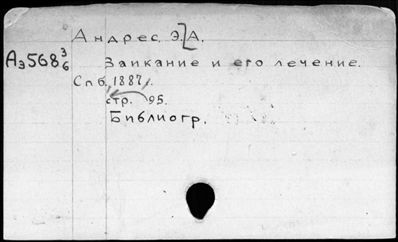 Андрес, Э. А.
Аэ568 3/6
Заикание и его лечение.
Спб, 1887.
стр. 95.
Библиогр.